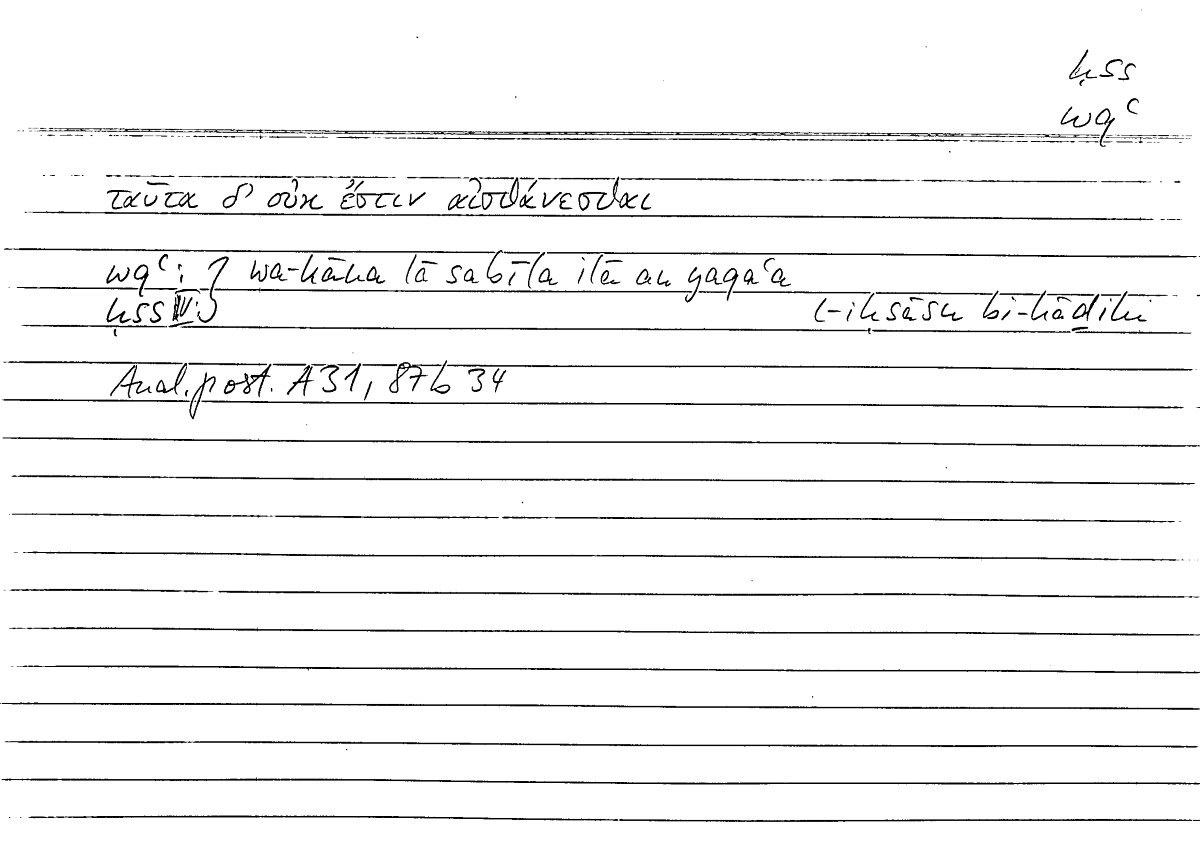 ḥss
wqʿ
ταῦτα δ' οὐκ ἔστιν αἰσθάνεσθαι
wqʿ: } wa-kāna lā sabīla ilā an yaqaʿa
ḥss IV: l-iḥsāsu bi-hāḏihi
Anal. post. A 31, 87b 34